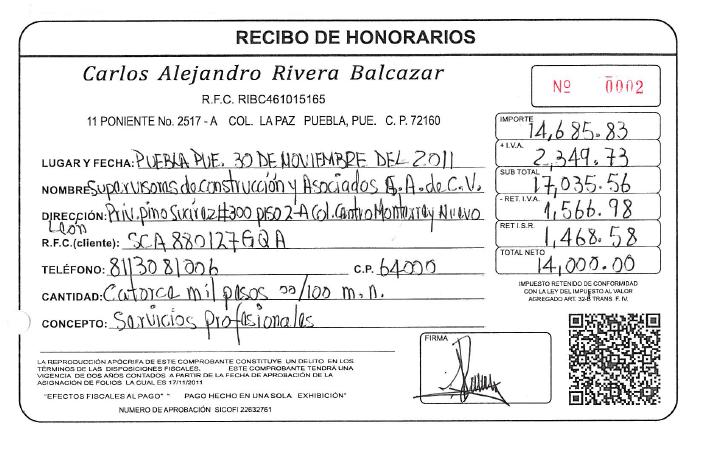 RECIBO DE HONORARIOS
Carlos Alejandro Rivera Balcazar
R.F.C. RIBC461015165
11 PONIENTE No. 2517 - A COL. LA PAZ PUEBLA, PUE. C. P. 72160
Nº 0002
LUGAR Y FECHA: PUEBLA PUE. 30 DE NOVIEMBRE DEL 2011
NOMBRE: Supervisores de construcción y Asociados S.A. de C.V.
DIRECCIÓN: Priv. pino Suárez #300 piso 2-A Col. Centro Monterrey Nuevo
León
R.F.C. (cliente): SCA 880127GQA
TELÉFONO: 8113081006 C.P. 64000
CANTIDAD: Catorce mil pesos 00/100 m.n.
CONCEPTO: Servicios profesionales
IMPORTE 14,685.83
+ I.V.A. 2,349.73
SUB TOTAL 17,035.56
- RET. I.V.A. 1,566.98
RET I.S.R. 1,468.58
TOTAL NETO 14,000.00
IMPUESTO RETENIDO DE CONFORMIDAD
CON LA LEY DEL IMPUESTO AL VALOR
AGREGADO ART. 32-B TRANS. F. IV.
LA REPRODUCCIÓN APÓCRIFA DE ESTE COMPROBANTE CONSTITUYE UN DELITO EN LOS
TÉRMINOS DE LAS DISPOSICIONES FISCALES. ESTE COMPROBANTE TENDRÁ UNA
VIGENCIA DE DOS AÑOS CONTADOS A PARTIR DE LA FECHA DE APROBACIÓN DE LA
ASIGNACIÓN DE FOLIOS LA CUAL ES 17/11/2011
"EFECTOS FISCALES AL PAGO" " PAGO HECHO EN UNA SOLA EXHIBICIÓN"
NUMERO DE APROBACIÓN SICOFI 22632761
FIRMA